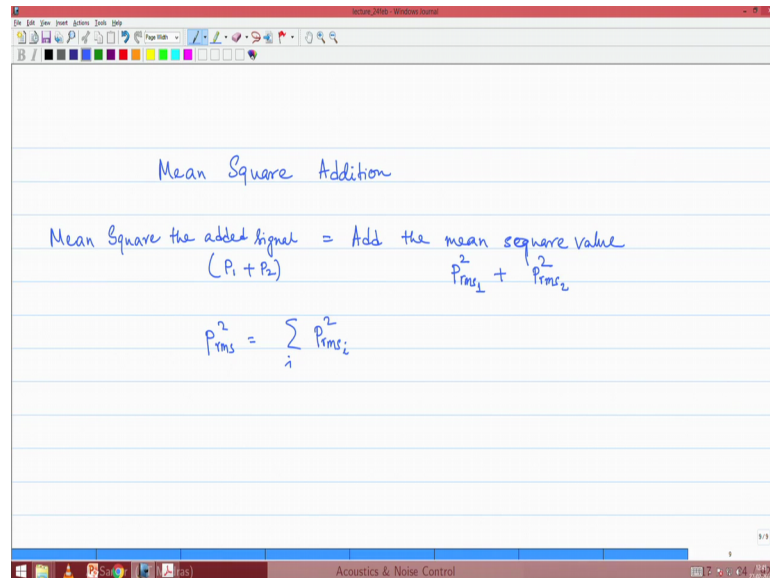 lecture_24feb - Windows Journal
File Edit View Insert Actions Tools Help
Page Width
B I
Mean Square Addition
Mean Square the added signal = Add the mean seqware value
(P₁ + P₂) P²rms₁ + P²rms₂
P²rms = Σᵢ P²rmsᵢ
9/9
9
Acoustics & Noise Control